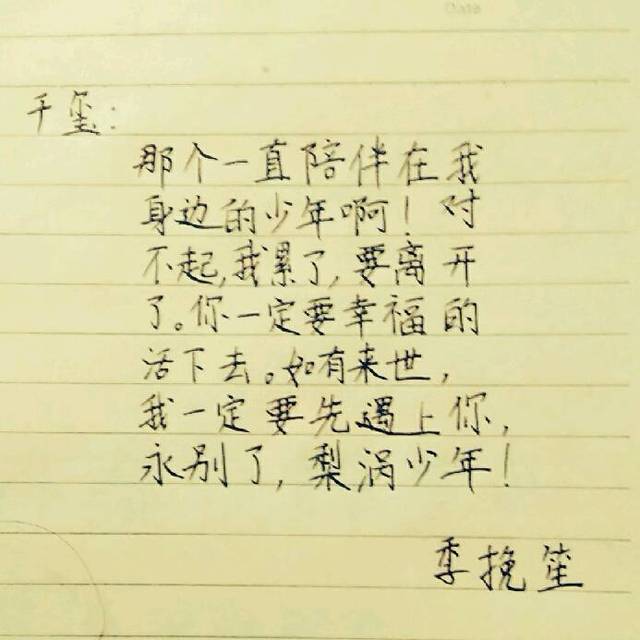 千玺:
那个一直陪伴在我
身边的少年啊!对
不起,我累了,要离开
了。你一定要幸福的
活下去。如有来世,
我一定要先遇上你,
永别了,梨涡少年!
季挽笙